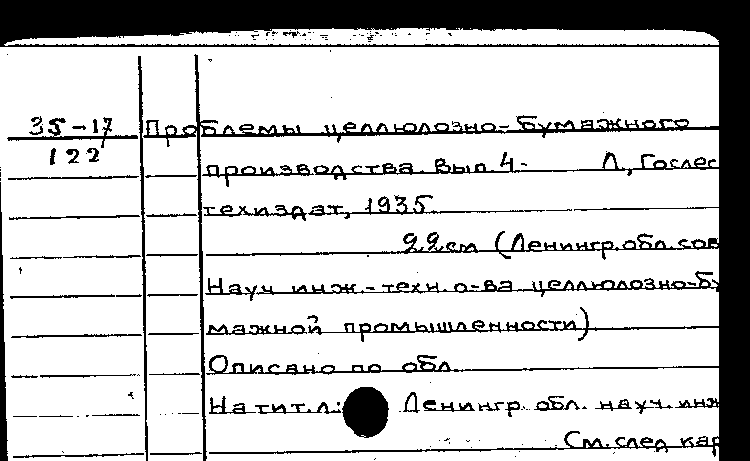 35-17 Проблемы целлюлозно-бумажного
122 производства. Вып. 4- Л, Гослес
техиздат, 1935.
22см (Ленингр. обл. сов
Науч инж.-техн. о-ва целлюлозно-бу
мажной промышленности).
Описано по обл.
На тит. л.: Ленингр. обл. науч. инж
См. след кар